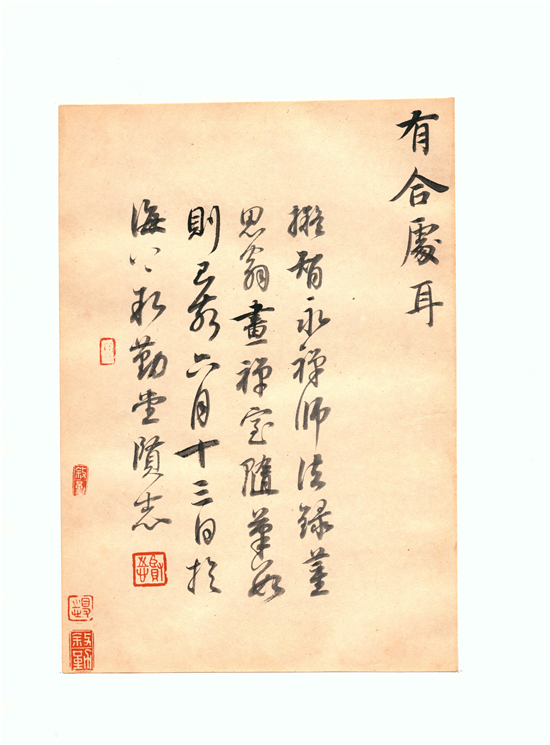 有合處耳
擬智永禪師法錄董
思翁畫禪室隨筆數
則己亥六月十三日於
海上敘勤堂賢志